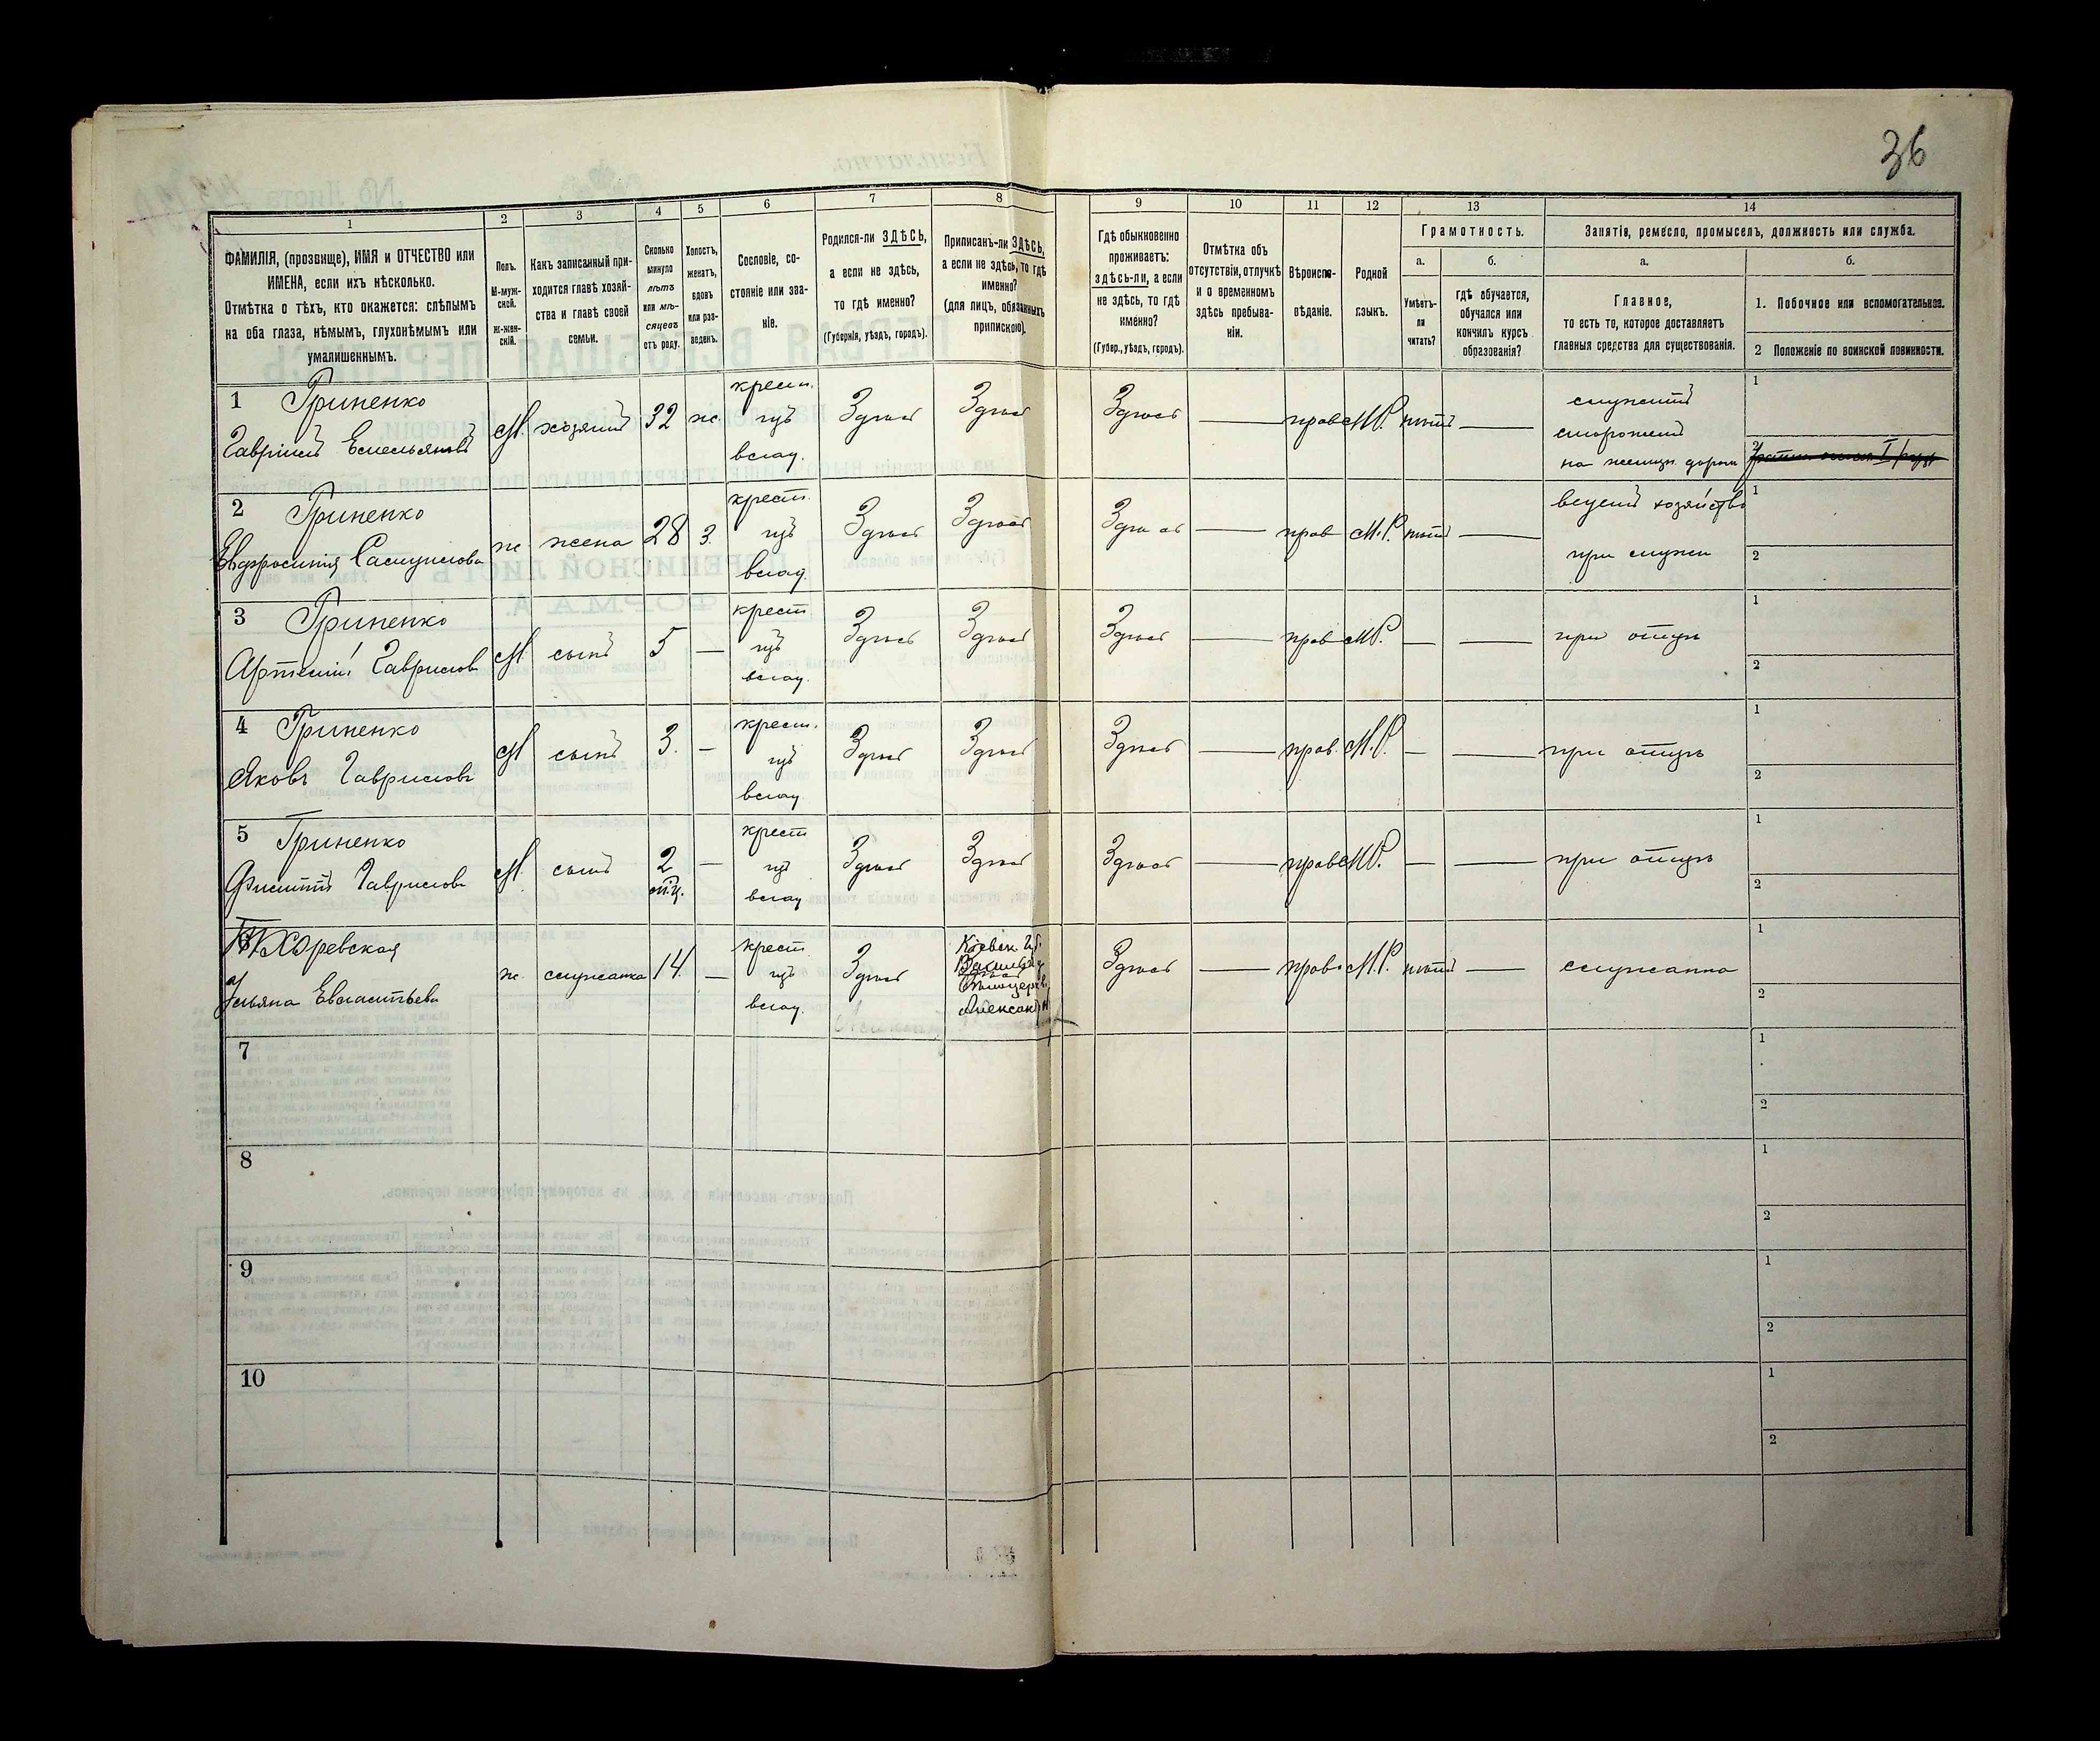 36
1 2 3 4 5 6 7 8 9 10 11 12 13 14
ФАМИЛІЯ, (прозвище), ИМЯ и ОТЧЕСТВО или
ИМЕНА, если ихъ нѣсколько.
Отмѣтка о тѣхъ, кто окажется: слѣпымъ
на оба глаза, нѣмымъ, глухонѣмымъ или
умалишеннымъ.
Полъ.
М-муж-
ской.
ж-жен-
скій.
Какъ записанный при-
ходится главѣ хозяй-
ства и главѣ своей
семьи.
Сколько
минуло
лѣтъ
или мѣ-
сяцевъ
отъ роду.
Холостъ,
женатъ,
вдовъ
или раз-
веденъ.
Сословіе, со-
стояніе или зва-
ніе.
Родился-ли ЗДѢСЬ,
а если не здѣсь,
то гдѣ именно?
(Губернія, уѣздъ, городъ).
Приписанъ-ли ЗДѢСЬ,
а если не здѣсь, то гдѣ
именно?
(для лицъ, обязанныхъ
припискою).
Гдѣ обыкновенно
проживаетъ:
здѣсь-ли, а если
не здѣсь, то гдѣ
именно?
(Губер., уѣздъ, городъ).
Отмѣтка объ
отсутствіи, отлучкѣ
и о временномъ
здѣсь пребыва-
ніи.
Вѣроиспо-
вѣданіе.
Родной
языкъ.
Грамотность.
а.
Умѣетъ-
ли
читать?
б.
гдѣ обучается,
обучался или
кончилъ курсъ
образованія?
Занятіе, ремесло, промыселъ, должность или служба.
а.
Главное,
то есть то, которое доставляетъ
главныя средства для существованія.
б.
1. Побочное или вспомогательное.
2 Положеніе по воинской повинности.
1 Гриненко
Гавріилъ Емельяновъ
М. хозяинъ 32 ж. крест. изъ влад. Здѣсь Здѣсь Здѣсь — прав. М.Р. нѣтъ —
служитъ
сторожемъ
на желѣзн. дорогѣ
1
2
2 Гриненко
Евфросинія Самуилова
ж жена 28 З. крест. изъ влад. Здѣсь Здѣсь Здѣсь — прав М.Р. нѣтъ —
ведетъ хозяйство
при мужѣ
1
2
3 Гриненко
Артемій Гаврилов
М сынъ 5 — крест изъ влад. Здѣсь Здѣсь Здѣсь — прав М.Р. — — при отцѣ
1
2
4 Гриненко
Яковъ Гавриловъ
М сынъ 3. — крест. изъ влад Здѣсь Здѣсь Здѣсь — прав. М.Р. — — при отцѣ
1
2
5 Гриненко
Филиппъ Гаврилов
М. сынъ 2 — крест изъ влад Здѣсь Здѣсь Здѣсь — прав М.Р. — — при отцѣ
1
2
Ульяна
ж. служанка 14. — крест изъ влад. Здѣсь
Кіевск. Губ.
Здѣсь — прав. М.Р. нѣтъ — служанка
1
2
7
1
2
8
1
2
9
1
2
10
1
2